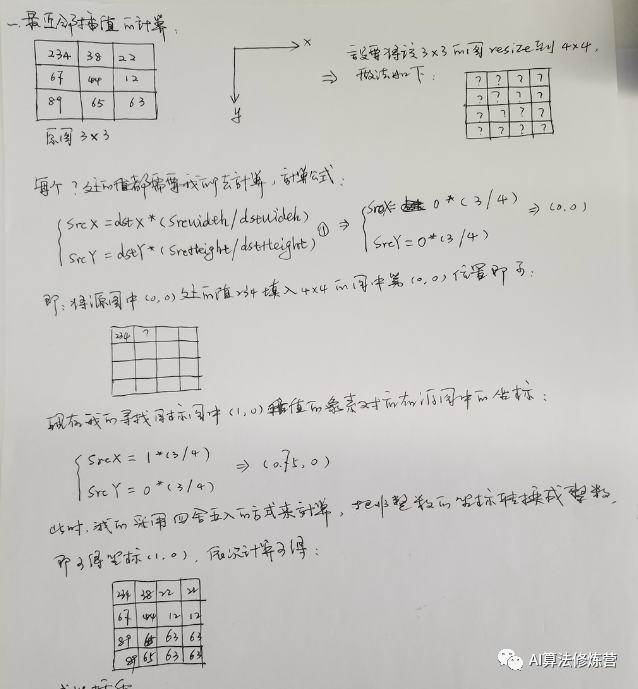 一.最近邻插值的计算:
234 38 22
67 44 12
89 65 63
原图 3×3
x
y
⇒ 设要将该3×3的图resize到4×4,
做法如下:
? ? ? ?
? ? ? ?
? ? ? ?
? ? ? ?
每个?处的值都需要我们去计算,计算公式:
{ SrcX=dstX*(Srcwidth/dstwidth)
SrcY=dstY*(SrcHeight/dstHeight) ① ⇒ { SrcX= 0*(3/4)
SrcY=0*(3/4) ⇒ (0,0)
即:将源图中(0,0)处的值234填入4×4的图中第(0,0)位置即可:
234 ?
现在我们寻找目标图中(1,0)值的像素对应在源图中的坐标:
{ SrcX = 1*(3/4)
SrcY = 0*(3/4) ⇒ (0.75,0)
此时,我们采用四舍五入的方式来计算,把非整数的坐标转换成整数,
即可得坐标(1,0),依次计算可得:
234 38 22 22
67 44 12 12
89 65 63 63
89 65 63 63
AI算法修炼营